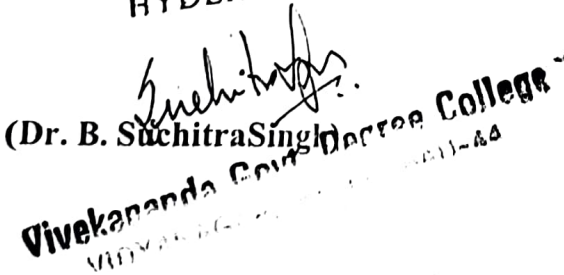 Suchitra
(Dr. B. SuchitraSingh)
Vivekananda Govt Degree College
)-44